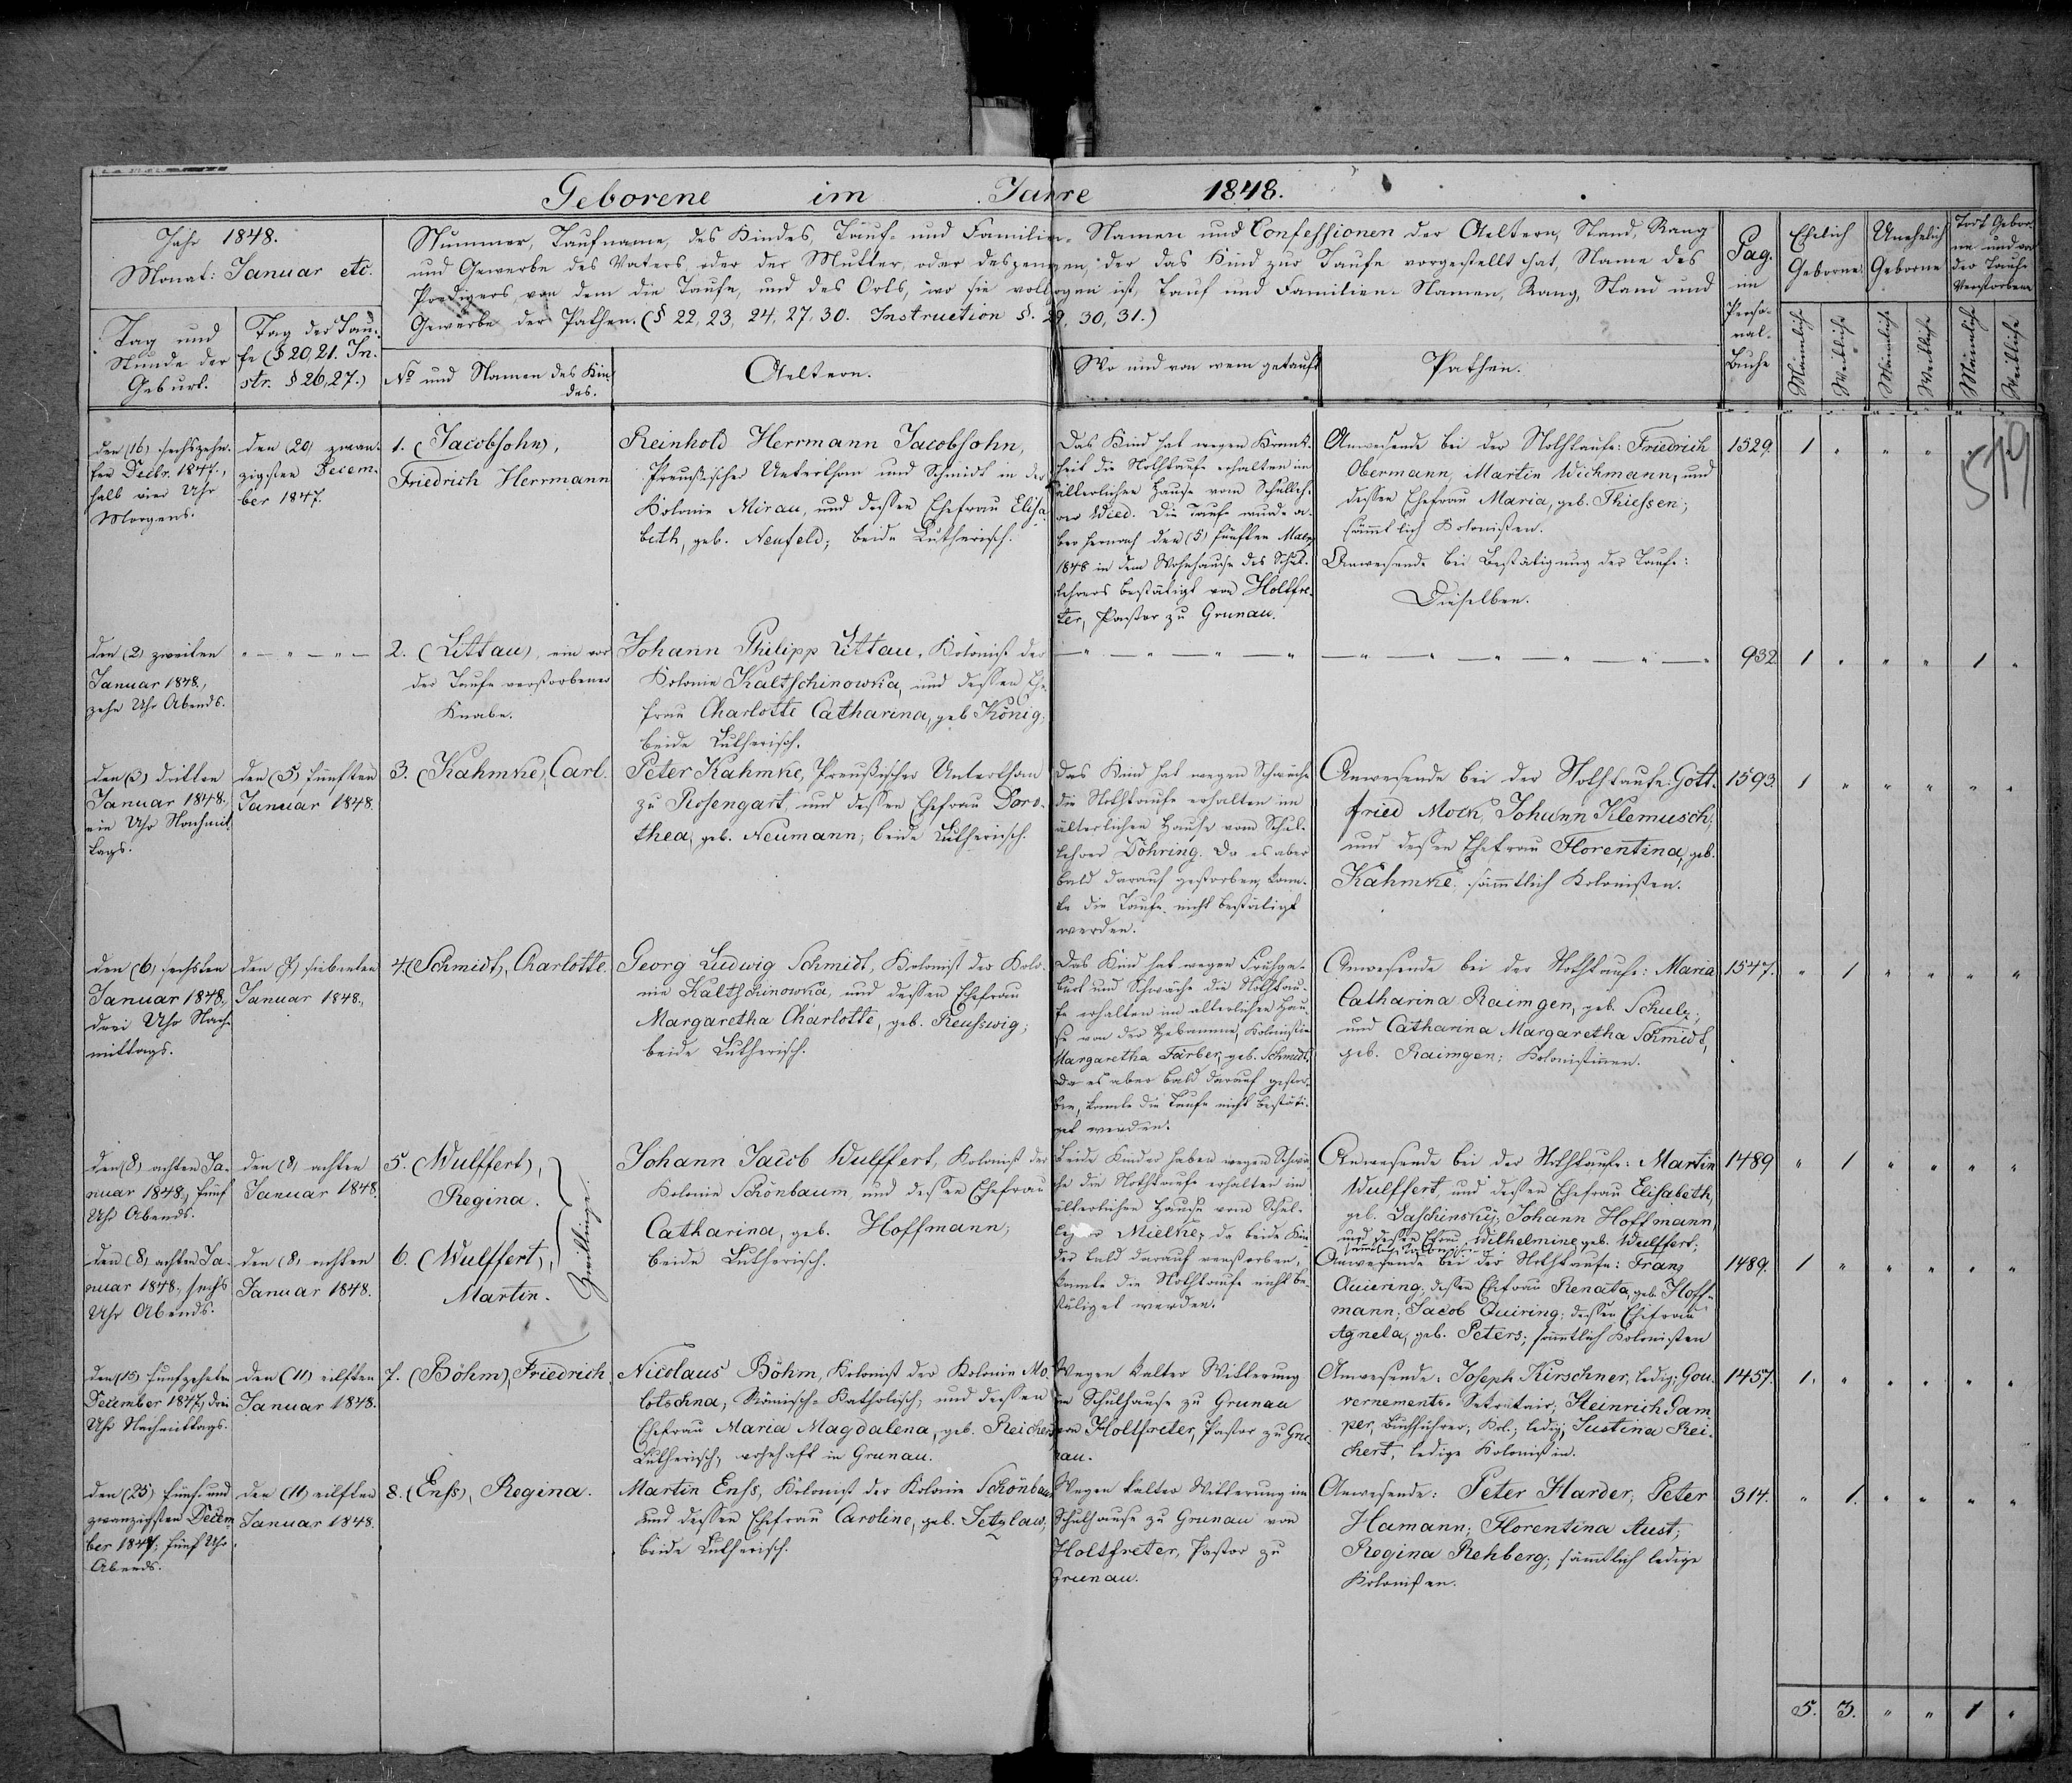 Geborene im Jahre 1848.
Jahr 1848.
Monat: Januar etc.
Tag und
Stunde der
Geburt.
Tag der Tau-
fe (§ 20, 21. In-
str. § 26, 27.)
Nummer, Taufname, des Kindes, Tauf- und Familien-Namen und Confessionen der Aeltern, Stand, Rang
und Gewerbe des Vaters, oder der Mutter, oder desjenigen, der das Kind zur Taufe vorgestellt hat, Name des
Predigers, von dem die Taufe, und des Orts, wo sie vollzogen ist, Tauf und Familien-Namen, Rang, Stand und
Gewerbe der Pathen. (§ 22, 23, 24, 27, 30. Instruction §. 29, 30, 31.)
No und Namen des Kin-
des.
Aeltern.
Wo und von wem getauft
Pathen.
Pag.
im
Perso-
nal-
Buche
Ehelich
Geborne.
Unehelich
Geborne
Todt Gebor-
ne und vor
der Taufe
Verstorbene
Männlich
Weiblich
Männlich
Weiblich
Männliche
Weibliche
579
den (16) sechszehn-
ten Decbr. 1847.,
halb vier Uhr
Morgens.
den (20) zwan-
zigsten Decem-
ber 1847.
1. (Jacobsohn),
Friedrich Herrmann
Reinhold Herrmann Jacobsohn,
Preußischer Unterthan und Schmidt in der
Kolonie Mirau, und dessen Ehefrau Elisa-
beth, geb. Neufeld; beide Lutherisch.
Das Kind hat wegen Krank-
heit die Nothtaufe erhalten im
älterlichen Hause vom Schulleh-
rer Wied. Die Taufe wurde a-
ber hernach den (5) fünften Maerz
1848 in dem Wohnhause des Schul-
lehrers bestätigt von Holtfre-
ter, Pastor zu Grunau.
Anwesende bei der Nothtaufe: Friedrich
Obermann, Martin Wichmann, und
dessen Ehefrau Maria, geb. Thiessen;
sämmtlich Kolonisten.
Anwesende bei Bestätigung der Taufe:
Dieselben.
1529. 1 " " " " "
den (2) zweiten
Januar 1848.,
zehn Uhr Abends.
" — " — " —
2. (Littau), ein vor
der Taufe verstorbener
Knabe.
Johann Philipp Littau, Kolonist der
Kolonie Kaltschinowka, und dessen Ehe-
frau Charlotte Catharina, geb König;
beide Lutherisch.
— " — " — " — "
— " — " — " — " — " — "
932 1 " " " 1 "
den (3) dritten
Januar 1848.,
ein Uhr Nachmit-
tags.
den (5) fünften
Januar 1848.
3. (Kahmke), Carl.
Peter Kahmke, Preußischer Unterthan
zu Rosengart, und dessen Ehefrau Doro-
thea, geb. Neumann; beide Lutherisch.
Das Kind hat wegen Schwäche
die Nothtaufe erhalten im
älterlichen Hause vom Schul-
lehrer Döhring. Da es aber
bald darauf gestorben, konn-
te die Taufe nicht bestätigt
werden.
Anwesende bei der Nothtaufe: Gott-
fried Mock, Johann Klemusch,
und dessen Ehefrau Florentina, geb.
Kahmke; sämmtlich Kolonisten.
1593. 1 " " " " "
den (6) sechsten
Januar 1848.,
drei Uhr Nach-
mittags.
den (7) siebenten
Januar 1848.,
4. (Schmidt), Charlotte.
Georg Ludwig Schmidt, Kolonist der Kolo-
nie Kaltschinowka, und dessen Ehefrau
Margaretha Charlotte, geb. Reusswig;
beide Lutherisch.
Das Kind hat wegen Frühge-
burt und Schwäche die Nothtau-
fe erhalten im älterlichen Hau-
se von der Hebamme, Kolonistin
Margaretha Färber, geb. Schmidt.
Da es aber bald darauf gestor-
ben, konnte die Taufe nicht bestäti-
get werden.
Anwesende bei der Nothtaufe: Maria
Catharina Raimgen, geb. Schulz;
und Catharina Margaretha Schmidt,
geb. Raimgen; Kolonistinnen.
1547. " 1 " " " "
den (8) achten Ja-
nuar 1848., fünf
Uhr Abends.
den (8) achten
Januar 1848.
5. (Wulffert),
Regina.
Zwillinge.
Johann Jacob Wulffert, Kolonist der
Kolonie Schönbaum, und dessen Ehefrau
Catharina, geb. Hoffmann;
beide Lutherisch.
Beide Kinder haben wegen Schwä-
che die Nothtaufe erhalten im
älterlichen Hause vom Schul-
lehrer Mielke; da beide Kin-
der bald darauf verstorben,
konnte die Nothtaufe nicht be-
stätiget werden.
Anwesende bei der Nothtaufe: Martin
Wulffert, und dessen Ehefrau Elisabeth,
geb. Daschinsky; Johann Hoffmann
und dessen Ehefrau Wilhelmine, geb. Wulffert;
sämmtlich Kolonisten
1489 " 1 " " " "
den (8) achten Ja-
nuar 1848., sechs
Uhr Abends.
den (8) achten
Januar 1848.
6. (Wulffert),
Martin.
Anwesende bei der Nothtaufe: Franz
Quiering, dessen Ehefrau Renata, geb. Hoff-
mann; Jacob Quiring; dessen Ehefrau
Agneta, geb. Peters; sämmtlich Kolonisten
1489. 1 " " " " "
den (15) fünfzehnten
December 1847, drei
Uhr Nachmittags.
den (11) eilften
Januar 1848.
7. (Böhm), Friedrich.
Nicolaus Böhm, Kolonist der Kolonie Mo-
lotschna, Römisch-Katholisch; und dessen
Ehefrau Maria Magdalena, geb. Reichert
Lutherisch; wohnhaft in Grunau.
Wegen kalter Witterung
im Schulhause zu Grunau
von Holtfreter, Pastor zu Gru-
nau.
Anwesende: Joseph Kirschner, ledig; Gou-
vernements-Sekretair, Heinrich Dam-
per, Buchführer, Kol., ledig; Justina Rei-
chert, ledige Kolonistin.
1457. 1. " " " " "
den (25) fünf und
zwanzigsten Decem-
ber 1847; fünf Uhr
Abends.
den (11) eilften
Januar 1848.
8. (Enss), Regina.
Martin Enss, Kolonist der Kolonie Schönbaum
und dessen Ehefrau Caroline, geb. Jetzlaw;
beide Lutherisch.
Wegen kalter Witterung im
Schulhause zu Grunau von
Holtfreter, Pastor zu
Grunau.
Anwesende: Peter Harder; Peter
Hamann; Florentina Aust;
Regina Rehberg; sämmtlich ledige
Kolonisten.
314. " 1. " " " "
5. 3. " " 1 "